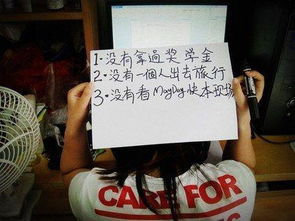 1·没有拿過奖学金
2·没有一個人出去旅行
3·没有看MayDay快本现场
CARE FOR